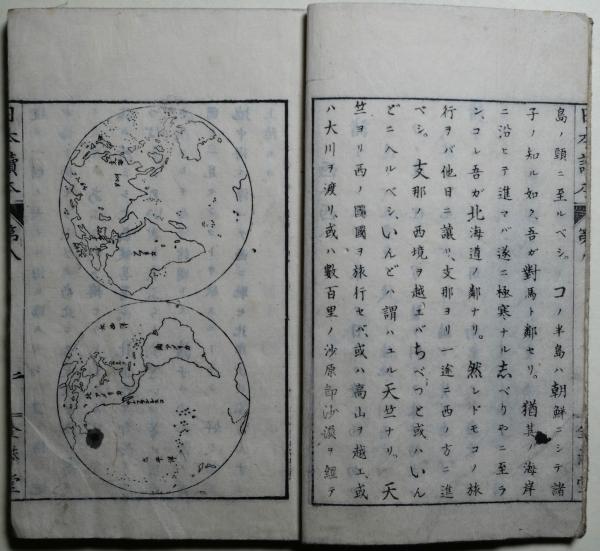 島ノ頭ニ至ルベシ。コノ半島ハ朝鮮ニシテ諸
子ノ知ル如ク、吾ガ對馬ト鄰セリ。猶其ノ海岸
ニ沿ヒテ進マバ遂ニ極寒ナル志べりやニ至ラ
シ、コレ吾ガ北海道ノ鄰ナリ。然レドモコノ旅
行ヲバ他日ニ讓リ、支那ヨリ一途ニ西ノ方ニ進
ベシ。支那ノ西境ヲ越エバちべっと或ハいん
どニヘルベシ、いんどハ謂ハユル天竺ナリ。天
竺ヨリ西ノ國國ヲ旅行セバ、或ハ高山ヲ越エ、或
ハ大川ヲ渡リ、或ハ數百里ノ沙原即沙漠ヲ經テ
日本讀本
第八
太平洋
大西洋
日本讀本
第八